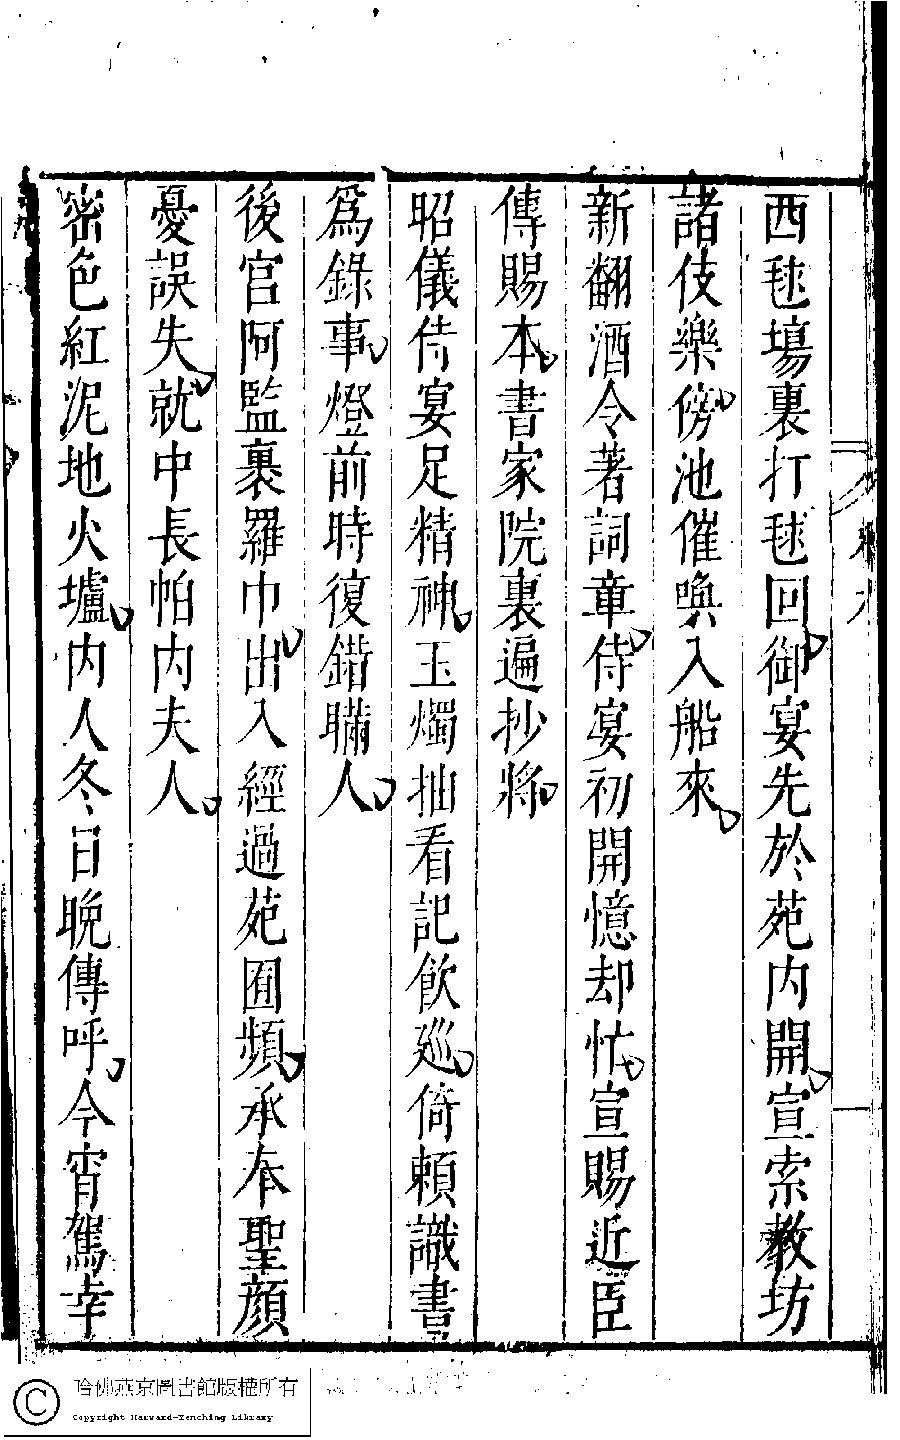 西毬場裏打毬回御宴先於苑内開宣索教坊
諸伎樂傍池催喚入船來
新翻酒令著詞章侍宴初開憶却忙宣賜近臣
傳賜本書家院裏遍抄將
昭儀侍宴足精神玉燭抽看記飲廵倚頼識書
爲錄事燈前時復錯瞞人
後宫阿監裹羅巾出入經過苑囿頻承奉聖顔
憂誤失就中長帕内夫人
密色紅泥地火爐内人冬日晚傳呼今宵駕幸
哈佛燕京圖書館版權所有
Copyright Harvard-Yenching Library